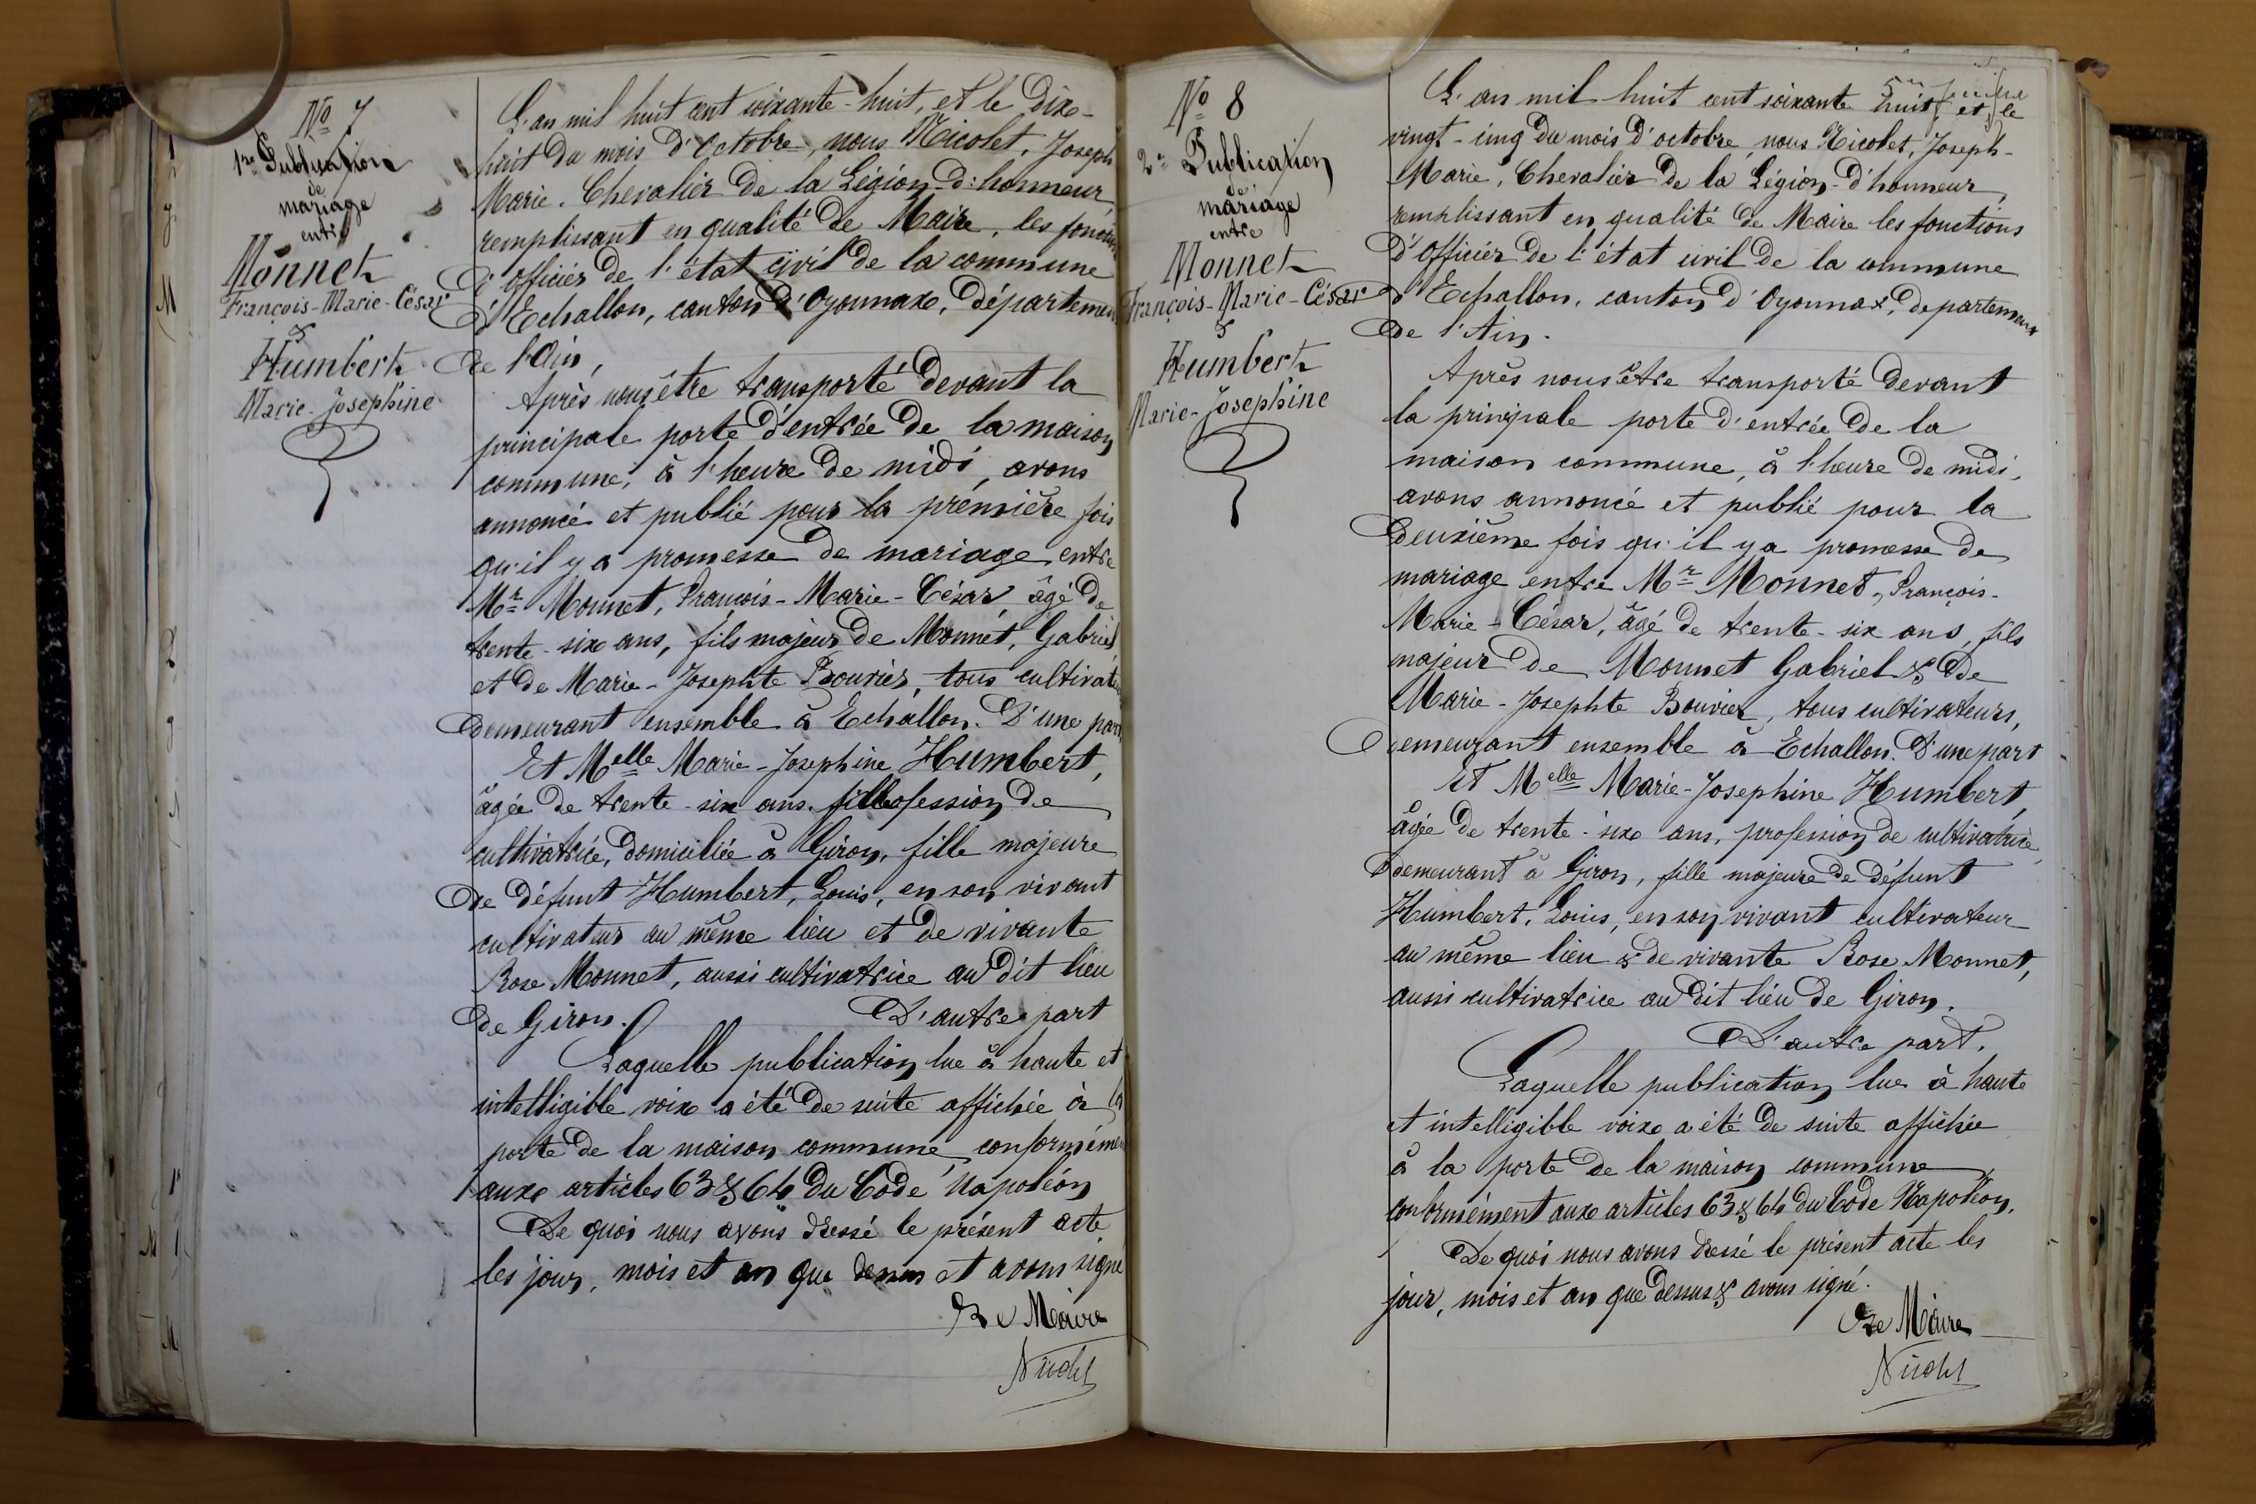 Nº 7
1re Publication
de
mariage
entre
Monnet
François-Marie-César
&
Humbert
Marie-Josephine
L'an mil huit cent soixante-huit, et le Dix-
huit du mois d'Octobre, nous Nicolet, Joseph
Marie, Chevalier de la Légion-d'honneur,
remplissant en qualité de Maire, les fonctions
d'officier de l'état civil de la commune
d'Echallon, canton d'Oyonnax, département
de l'Ain,
Après nous être transporté devant la
principale porte d'entrée de la maison
commune, à l'heure de midi, avons
annoncé et publié pour la première fois
qu'il y a promesse de mariage entre
Mr Monnet, François-Marie-César, âgé de
trente-six ans, fils majeur de Monnet, Gabriel
et de Marie-Josephte Bouvier, tous cultivateurs
demeurant ensemble à Echallon. D'une part
Et Melle Marie-Josephine Humbert,
âgée de trente-six ans, profession de
cultivatrice, domiciliée à Giron, fille majeure
de défunt Humbert, Louis, en son vivant
cultivateur au même lieu et de vivante
Rose Monnet, aussi cultivatrice au dit lieu
de Giron. D'autre part
Laquelle publication lue à haute et
intelligible voix a été de suite affichée à la
porte de la maison commune conformément
aux articles 63 & 64 du Code Napoléon
De quoi nous avons dressé le présent acte
les jour, mois et an que dessus et avons signé
Le Maire
Nicolet
Nº 8
2e Publication
de
mariage
entre
Monnet
François-Marie-César
&
Humbert
Marie-Josephine
5me feuille
L'an mil huit cent soixante huit, et le
vingt-cinq du mois d'octobre, nous Nicolet, Joseph-
Marie, Chevalier de la Légion-d'honneur,
remplissant en qualité de Maire les fonctions
d'Officier de l'état civil de la commune
d'Echallon, canton d'Oyonnax, département
de l'Ain.
Après nous être transporté devant
la principale porte d'entrée de la
maison commune, à l'heure de midi,
avons annoncé et publié pour la
deuxième fois qu'il y a promesse de
mariage entre Mr Monnet, François-
Marie-César, âgé de trente-six ans, fils
majeur de Monnet Gabriel & de
Marie-Josephte Bouvier, tous cultivateurs,
demeurant ensemble à Echallon. D'une part
Et Melle Marie-Josephine Humbert,
âgée de trente-six ans, profession de cultivatrice,
demeurant à Giron, fille majeure de défunt
Humbert, Louis, en son vivant cultivateur
au même lieu & de vivante Rose Monnet,
aussi cultivatrice au dit lieu de Giron.
D'autre part.
Laquelle publication lue à haute
et intelligible voix a été de suite affichée
à la porte de la maison commune
conformément aux articles 63 & 64 du Code Napoléon.
De quoi nous avons dressé le présent acte les
jour, mois et an que dessus & avons signé.
Le Maire
Nicolet